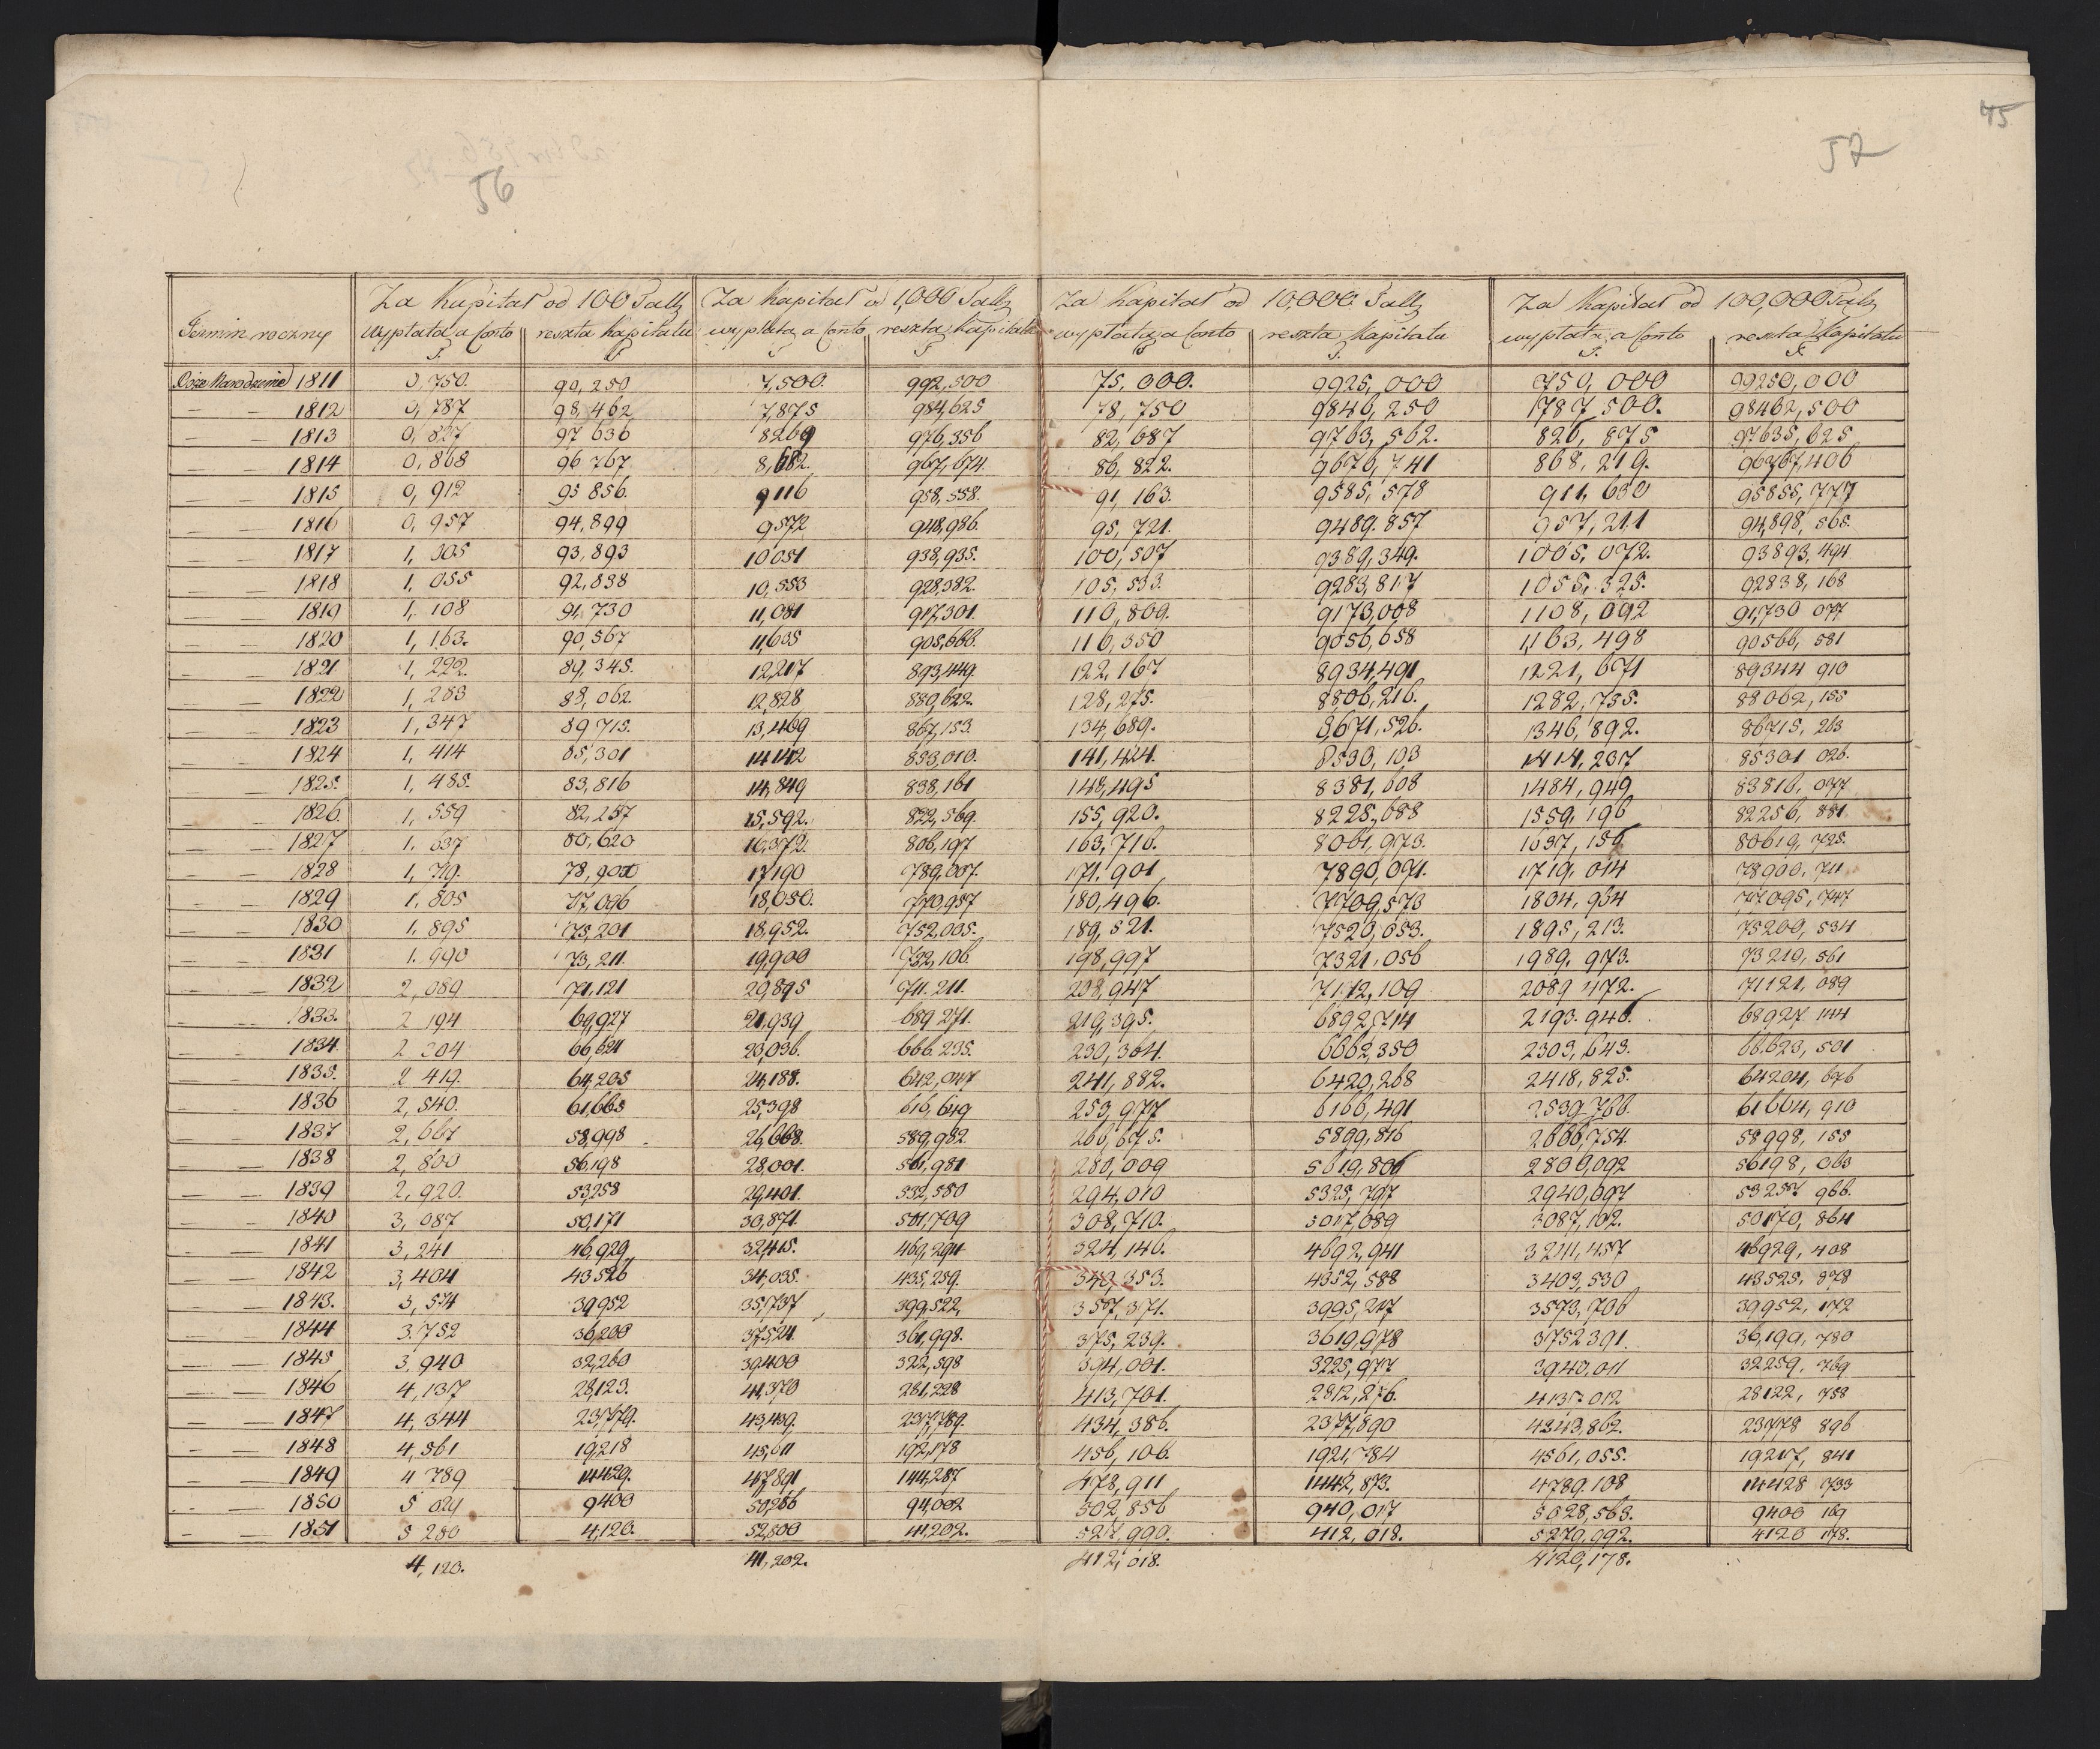 45
56
57
Termin roczny | Za Kapitał od 100 Tall. | Za Kapitał o 1,000 Tall. | Za Kapitał od 10,000. Tall. | Za Kapitał od 100,000 Tall.
Wypłata a Conto | reszta kapitału | wypłata a Conto | reszta kapitału | wypłata a Conto | reszta Kapitału | wypłata a Conto | reszta Kapitału
T. | T | T | T | T | T. | T. | T.
Boże Narodzenie 1811 | 0,750. | 99,250 | 7,500. | 992,500 | 75,000. | 9925,000 | 750,000 | 99250,000
— — 1812 | 0,787 | 98,462 | 7,875 | 984,625 | 78,750 | 9846,250 | 787,500. | 98462,500
— — 1813 | 0,827 | 97 636 | 8269 | 976,356 | 82,687 | 9763,562. | 826,875 | 97635,625
— — 1814 | 0,868 | 96 767 | 8,682. | 967,674. | 86,822. | 9676,741 | 868,219. | 96767,406
— — 1815 | 0,912 | 95 856. | 9116 | 958,558. | 91,163. | 9585,578 | 911,630 | 95855,777
— — 1816 | 0,957 | 94,899 | 9572 | 948,986. | 95,721. | 9489.857 | 957,211 | 94,898,565.
— — 1817 | 1,005 | 93,893 | 10051 | 938,935. | 100,507 | 9389,349. | 1005,072. | 93893,494
— — 1818 | 1,055 | 92,838 | 10,553 | 928,382. | 105,533. | 9283,817 | 1055,325. | 92838,168
— — 1819 | 1,108 | 91,730 | 11,081 | 917,301. | 110,809. | 9173,008 | 1108,092 | 91,730 077
— — 1820 | 1,163. | 90,567 | 11,635 | 905,666. | 116,350 | 9056,658 | 1,163,498 | 90566,581
— — 1821 | 1,222. | 89,345. | 12,217 | 893,449. | 122,167. | 8934,491 | 1221,671 | 89344 910
— — 1822 | 1,283 | 88,062. | 12,828 | 880,622. | 128,275. | 8806,216. | 1282,755. | 88062,155
— — 1823 | 1,347 | 89 715. | 13,469 | 867,153. | 134,689. | 8671,526. | 1346,892. | 86715,263
— — 1824 | 1,414 | 85,301 | 14142 | 853,010. | 141,424. | 8530,103 | 1414,237 | 85301 026.
— — 1825. | 1,485. | 83,816 | 14,849 | 838,161 | 148,495 | 8381,608 | 1484,949 | 83816,077
— — 1826. | 1,559 | 82,257 | 15,592. | 822,569. | 155,920. | 8225,688 | 1559,196 | 82256,881
— — 1827 | 1.637 | 80,620 | 16,372. | 806,197 | 163,716. | 8061,973. | 1637,156 | 80619,725.
— — 1828 | 1,719. | 78,901 | 17190 | 789,007. | 171.901 | 7890,071. | 1719,014 | 78900,711
— — 1829 | 1,805 | 77,096 | 18,050. | 770,957 | 180,496. | 7709,573 | 1804,964 | 77095,747
— — 1830 | 1.895 | 75,201 | 18,952. | 752,005. | 189,521. | 7520,053. | 1895,213. | 75200,534
— — 1831 | 1.990 | 73,211. | 19,900 | 732,106 | 198,997 | 7321,056 | 1989,973. | 73210,561
— — 1832 | 2,089 | 71,121 | 20,895 | 711.211. | 208,947 | 7112,109 | 2089 472. | 71121,089
— — 1833. | 2 194 | 69,927 | 21,939 | 689 271. | 219,395. | 6892,714 | 2193.946. | 68927 144
— — 1834. | 2 304 | 66,624 | 23,036. | 666.235. | 230,364. | 6662,350 | 2303,643. | 66.623,501
— — 1835. | 2 419. | 64,205 | 24,188. | 642,047 | 241,882. | 6420,268 | 2418,825. | 64204,676
— — 1836 | 2,540. | 61,665 | 25,398 | 616,649 | 253,977 | 6166,491 | 2539,766. | 61664,910
— — 1837 | 2,667 | 58,998 | 26,668. | 589,982. | 266,675. | 5899,816 | 2666,754. | 58998,155
— — 1838 | 2,800 | 56,198 | 28,001. | 561,981 | 280,009 | 5619,806 | 2800,092 | 56198,063
— — 1839 | 2,920. | 53,258 | 29,401. | 532,580 | 294,010 | 5325,797 | 2940,097 | 53257 966.
— — 1840 | 3,087 | 50,171 | 30,871. | 501,709 | 308,710. | 5017,089 | 3087,102. | 50170,864
— — 1841 | 3,241 | 46,929 | 32,415. | 469,294 | 324,146. | 4692,941 | 3241,457 | 46929,408
— — 1842 | 3,404 | 43526 | 34,035. | 435,259. | 340,353. | 4352,588 | 3403,530 | 43525,878
— — 1843. | 3,574 | 39952 | 35,737 | 399,522, | 357,371. | 3995,217 | 3573,706 | 39952,172
— — 1844 | 3.752 | 36,200 | 37,524. | 361,998. | 375,239. | 3619,978 | 3752 391. | 36,199,780
— — 1845 | 3,940 | 32,260 | 39400 | 322,598 | 394,001. | 3225,977 | 3940,011 | 32259,769
— — 1846 | 4,137 | 28,123. | 41,370 | 281,228 | 413,701. | 2812,276. | 4137 012 | 28122,758
— — 1847 | 4,344 | 23,779. | 43,439, | 237,789. | 434,386. | 2377,890 | 4343,862. | 23778 896
— — 1848 | 4,561 | 19,218 | 45,611 | 192,178 | 456,106. | 1921,784 | 4561,055. | 19217,841
— — 1849 | 4 789 | 14429. | 47,891 | 144,287 | 478,911 | 1442,873. | 4789.108 | 14428 733
— — 1850 | 5 024 | 9400 | 50,286 | 94,002 | 502,856 | 940,017 | 5028,565. | 9400 169
— — 1851 | 5 280 | 4,120. | 52,800 | 41,202. | 527,990. | 412,018. | 5279,992. | 4120 178.
4,120. | 41,202. | 412,018. | 4120,178.